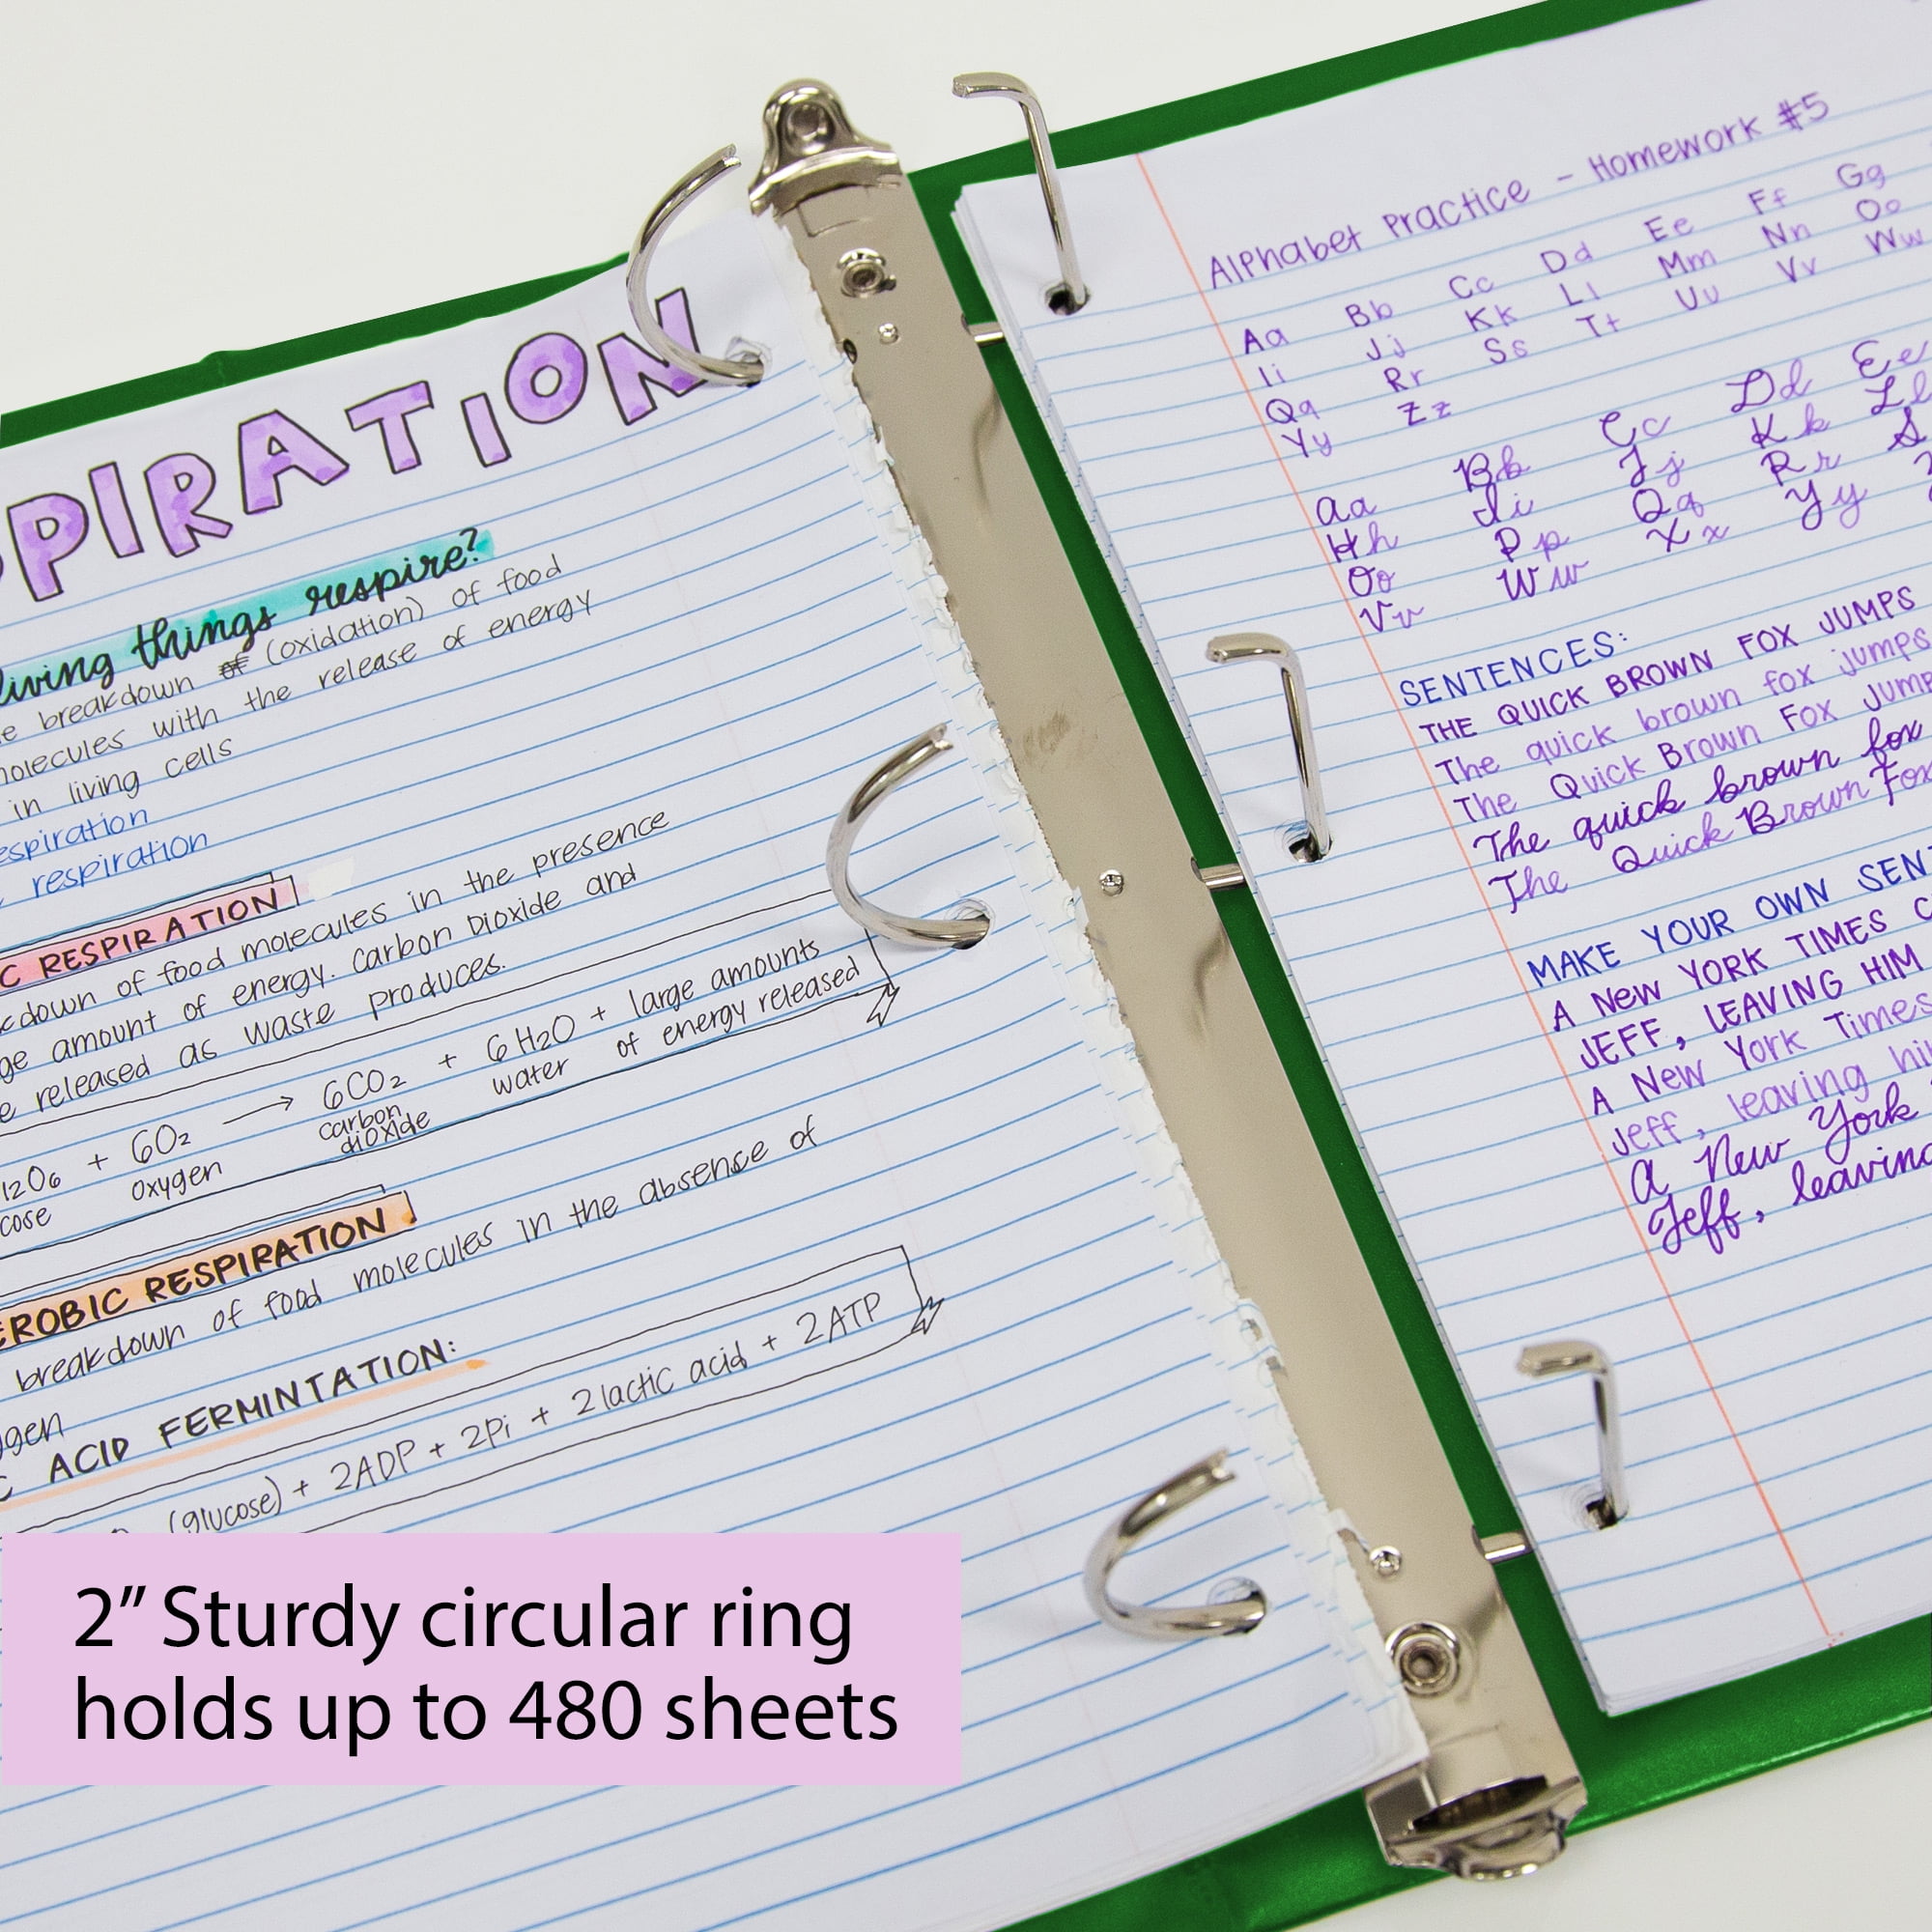 PIRATION
living things respire?
breakdown of (oxidation) of food
molecules with the release of energy
in living cells
respiration
respiration
C RESPIRATION
kdown of food molecules in the presence
ge amount of energy. Carbon Dioxide and
e released as waste produces.
12O6 + 6O2 → 6CO2 + 6H2O + large amounts
of energy released
cose oxygen carbon dioxide water
EROBIC RESPIRATION
breakdown of food molecules in the absence of
ygen
C ACID FERMINTATION:
(glucose) + 2ADP + 2Pi + 2 lactic acid + 2ATP
2” Sturdy circular ring
holds up to 480 sheets
Alphabet Practice - Homework #5
Aa Bb Cc Dd Ee Ff Gg
Ii Jj Kk Ll Mm Nn Oo
Qq Rr Ss Tt Uu Vv Ww
Yy Zz
Aa Bb Cc Dd Ee
Hh Ii Jj Kk Ll
Oo Pp Qq Rr S
Vv Ww Xx Yy
SENTENCES:
THE QUICK BROWN FOX JUMPS
The quick brown fox jumps
The Quick Brown Fox Jump
The quick brown fox
The Quick Brown Fox
MAKE YOUR OWN SENT
A NEW YORK TIMES C
JEFF, LEAVING HIM
A New York Times
Jeff, leaving hi
A New York
Jeff, leaving